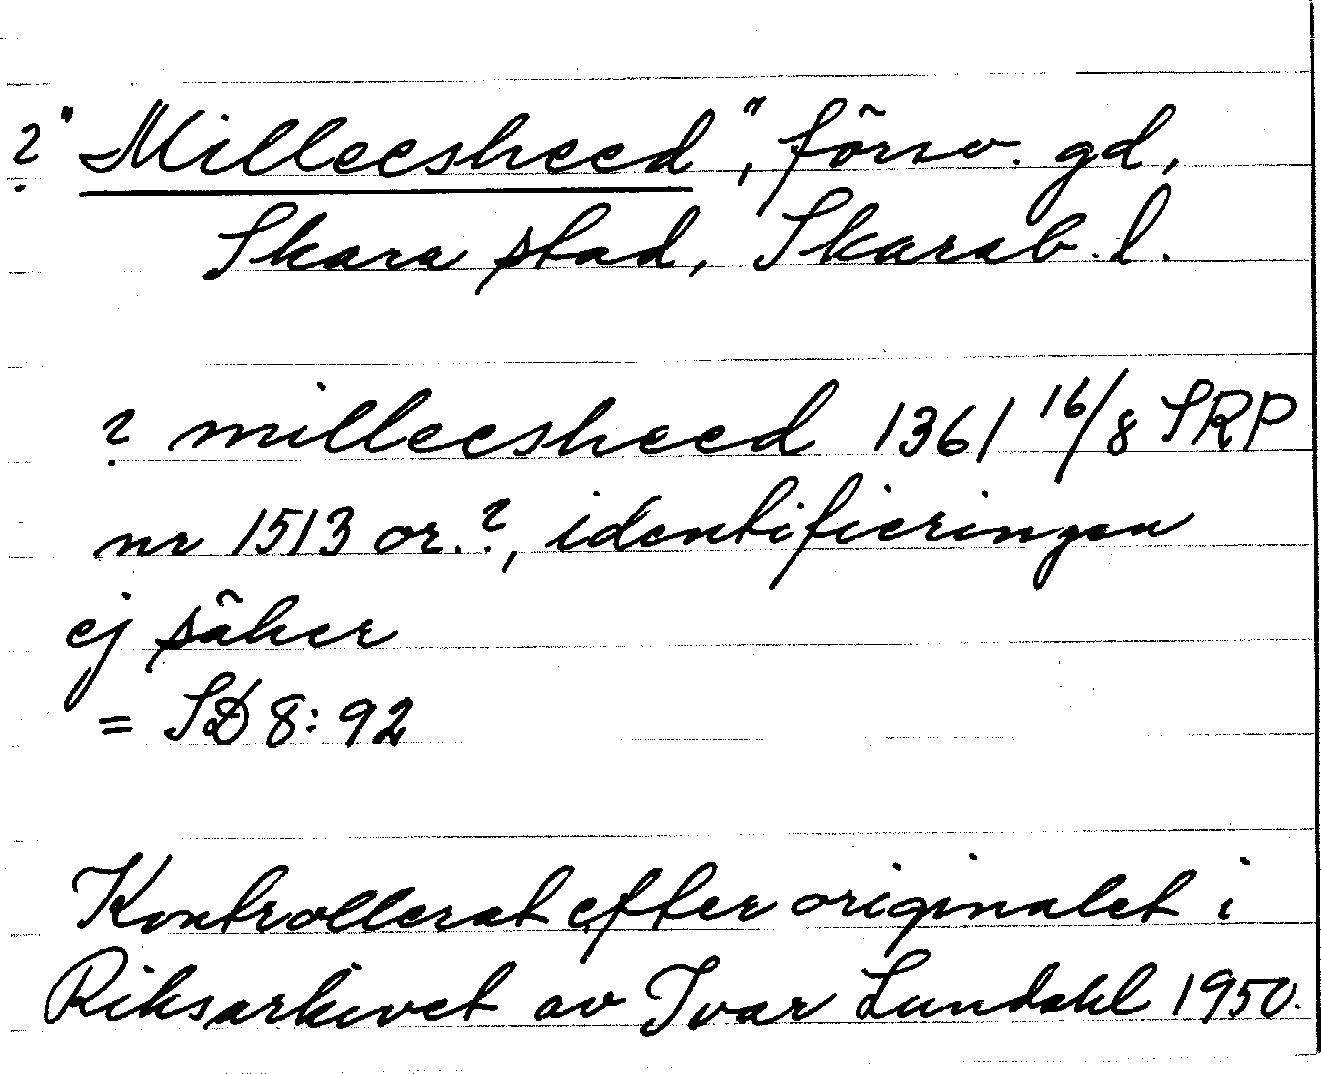 ? "Milleesheed", försv. gd,
Skara stad, Skarab. l.
? milleesheed 1361 16/8 SRP
nr 1513 or.?, identifieringen
ej säker
= SD 8:92
Kontrollerat efter originalet i
Riksarkivet av Ivar Lundahl 1950.